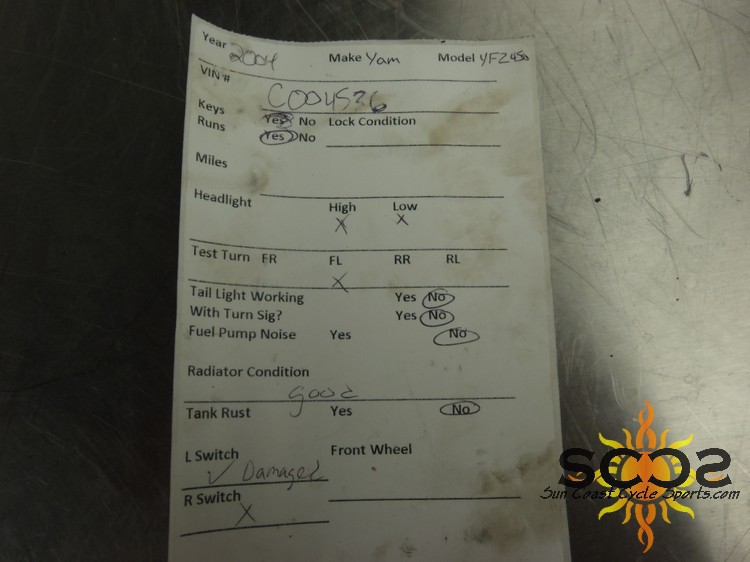 Year 2004 Make Yam Model YFZ450
VIN #
C004536
Keys Yes No Lock Condition
Runs Yes No
Miles
Headlight High Low
X X
Test Turn FR FL RR RL
X
Tail Light Working Yes No
With Turn Sig? Yes No
Fuel Pump Noise Yes No
Radiator Condition
good
Tank Rust Yes No
L Switch Front Wheel
✓ Damaged
R Switch
X
SCCS
Sun Coast Cycle Sports.com